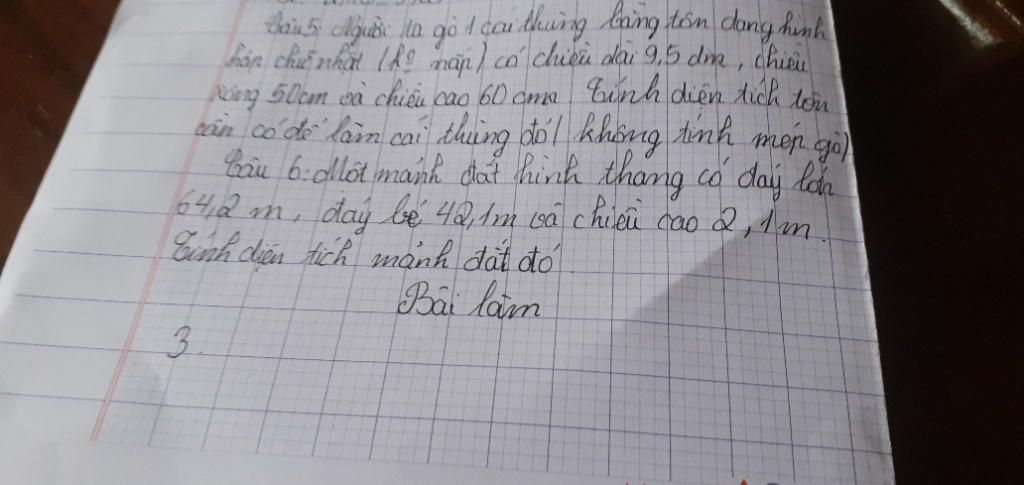 Câu 5: Người ta gò 1 cái thùng bằng tôn dạng hình
hộp chữ nhật (ko nắp) có chiều dài 9,5 dm, chiều
rộng 50cm và chiều cao 60 cm. Tính diện tích tôn
cần có để làm cái thùng đó( không tính mép gò)
Câu 6: Một mảnh đất hình thang có đáy lớn
64,2 m, đáy bé 42,1m và chiều cao 2,1m.
Tính diện tích mảnh đất đó
Bài làm
3.